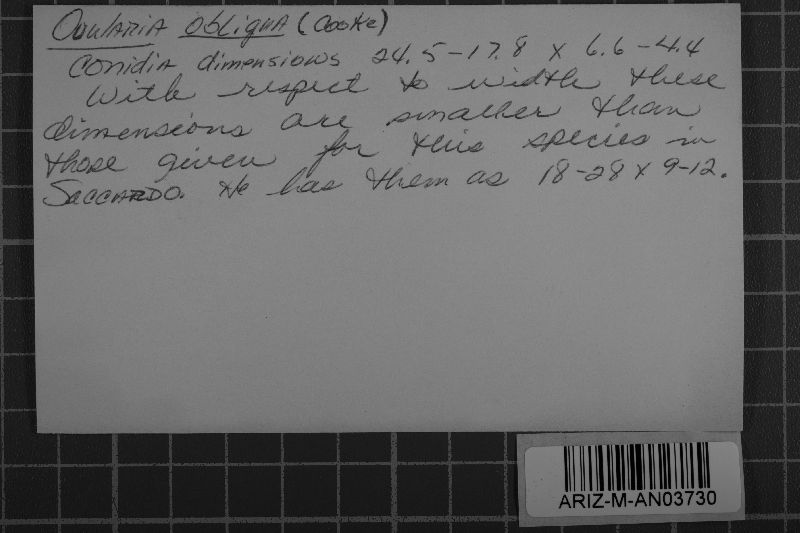 Ovularia obliqua (Cooke)
Conidia dimensions 24.5-17.8 x 6.6-4.4
With respect to width these
dimensions are smaller than
those given for this species in
Saccardo. He has them as 18-28 x 9-12.
ARIZ-M-AN03730